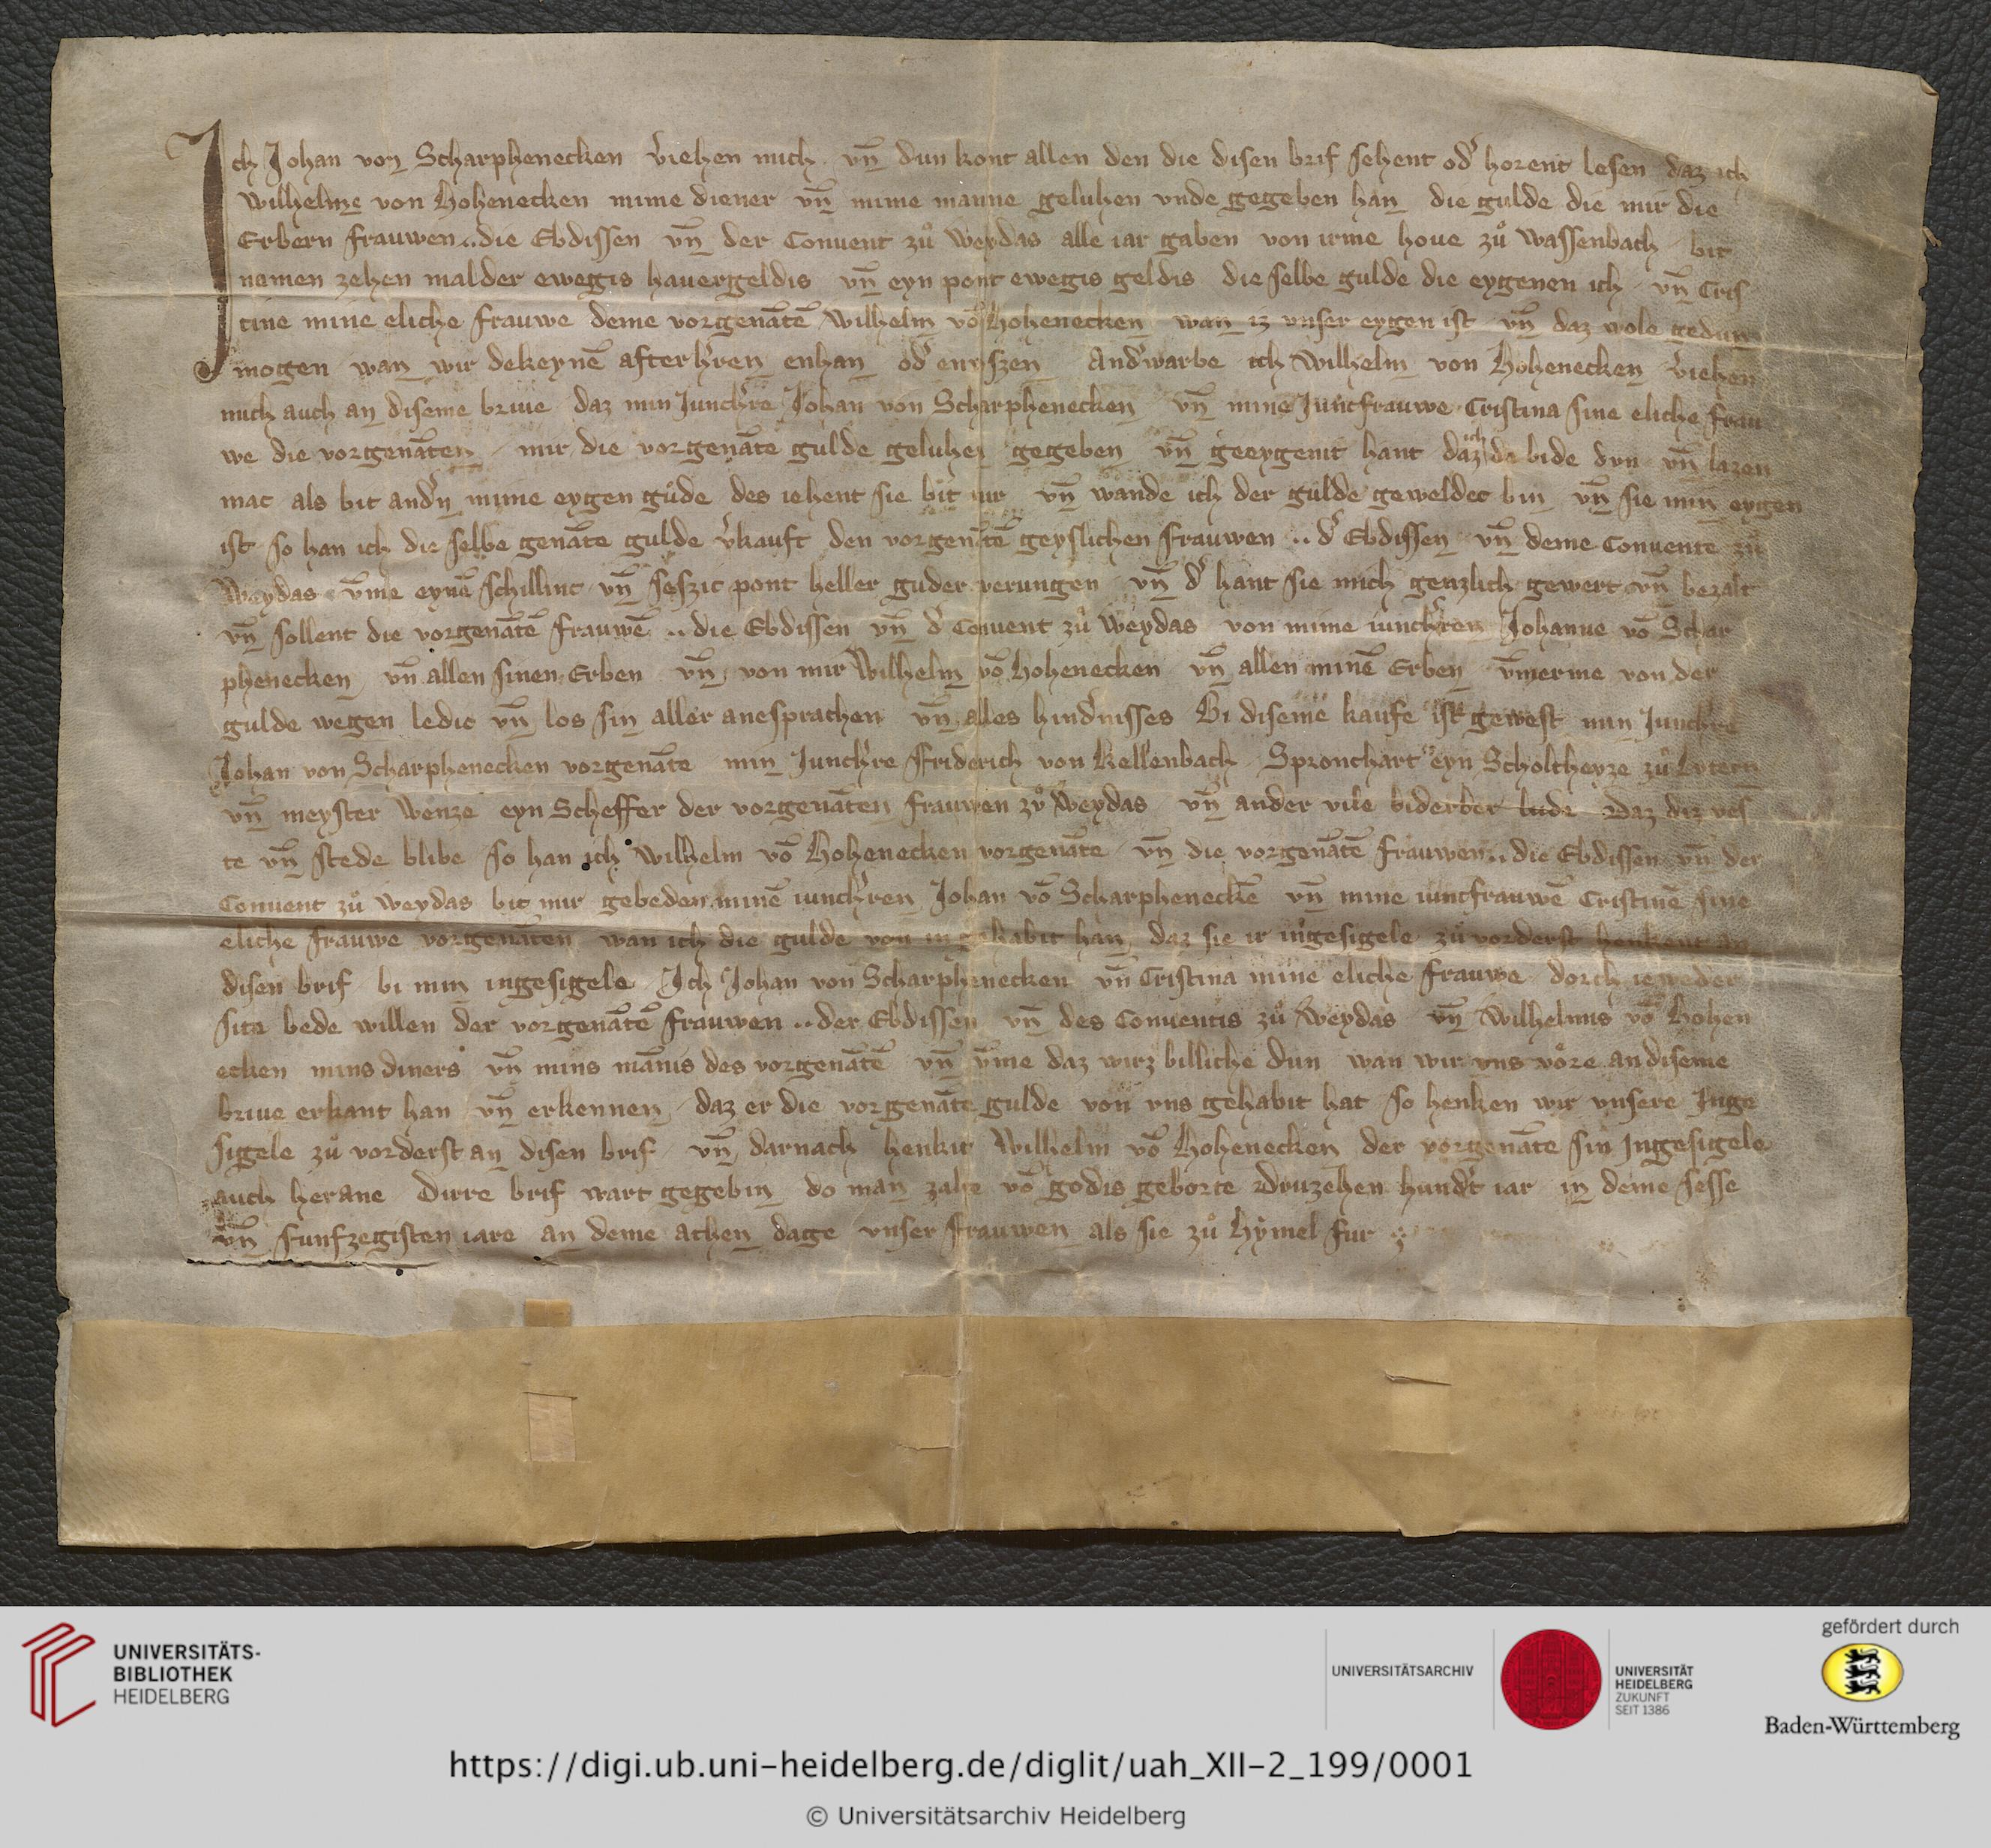 Ich Johan von Scharphenecken v̓iehen mich vn̄ dun kont allen den die disen brif sehent od̓ horent lesen daz ich
Wilhelme von Hohenecken mime diener vn̄ mime manne geluhen vnde gegeben han die gulde die mir die
Erbern frauwen .. die Ebdissen vn̄ der Conuent zů Weydas alle iar gaben von irme houe zů Wassenbach bit
namen zehen malder ewegis hauergeldis vn̄ eyn pont ewegis geldis die selbe gulde die eygenen ich vn̄ Cris
tine mine eliche frauwe deme vorgenāten̄ Wilhelm vō Hohenecken wan iz vnser eygen ist vn̄ daz wole gedun
mogen wan wir dekeynē afterh̓ren enhan od̓ And̓warbe ich Wilhelm von Hohenecken v̓iehen
mich auch an diseme briue daz min Junch̓re Johan von Scharphenecken vn̄ mine Juncfrauwe Cristina sine eliche frau
we die vorgenāten mir die vorgenāte gulde geluhen gegeben vn̄ geeygenit hant daz ich da bide dun vn̄ lazen
mac als bit and̓n mime eygen gůde des iehent sie bit mir vn̄ wande ich der gulde geweldec bin vn̄ sie min eygen
ist so han ich die selbe genāte gulde v̓kauft den vorgenātē geyslichen frauwen .. d̓ Ebdissen vn̄ deme Conuente zů
Weydas v̄me eynē schillinc vn̄ seszic pont heller guder werungen vn̄ d̓ hant sie mich genzlich gewert vn̄ bezalt
vn̄ sollent die vorgenātē frauwē .. die Ebdissen vn̄ d̓ Conuent zů Weydas von mime iunch̓ren Johanne vō Schar
phenecken vn̄ allen sinen Erben vn̄ von mir Wilhelm vō Hohenecken vn̄ allen minē Erben v̄merme von der
gulde wegen ledic vn̄ los sin aller anesprachen vn̄ alles hind̓nisses Bi diseme kaufe ist gewest min Junch̓re
Johan von Scharphenecken vorgenāte min Junch̓re Friderich von Kellenbach Spronchart eyn Scholtheyze zů Lutern
vn̄ meyster Wenze eyn Scheffer der vorgenāten frauwen zů Weydas vn̄ ander vile biderber lude Daz diz ves
te vn̄ stede blibe so han ich Wilhelm vō Hohenecken vorgenāte vn̄ die vorgenātē frauwen .. die Ebdissen vn̄ der
Conuent zů Weydas bit mir gebeden minē iunch̓ren Johan vō Scharpheneckē vn̄ mine iuncfrauwē Cristinē sine
eliche frauwe vorgenāten wan ich die gulde von in gehabit han daz sie ir ingesigele zů vorderst henkent an
disen brif bi min ingesigele Ich Johan von Scharphenecken vn̄ Cristina mine eliche frauwe dorch ieweder
site bede willen der vorgenātē frauwen .. der Ebdissen vn̄ des Conuentis zů Weydas vn̄ Wilhelmis vō Hohen
ecken mins diners vn̄ mins mānis des vorgenātē vn̄ v̄me daz wirz billiche dun wan wir vns vore an diseme
briue erkant han vn̄ erkennen daz er die vorgenāte gulde von vns gehabit hat so henken wir vnsere Inge
sigele zů vorderst an disen brif vn̄ darnach henkit Wilhelm vō Hohenecken der vorgenāte sin Ingesigele
auch herane Dirre brif wart gegebin do man zalte vō godis geborte Druzehen hund̓t iar in deme sesse
vn̄ funfzegisten iare an deme achen dage vnser frauwen als sie zů hymel fur
UNIVERSITÄTS-
BIBLIOTHEK
HEIDELBERG
UNIVERSITÄTSARCHIV
UNIVERSITÄT
HEIDELBERG
ZUKUNFT
SEIT 1386
gefördert durch
Baden-Württemberg
https://digi.ub.uni-heidelberg.de/diglit/uah_XII-2_199/0001
© Universitätsarchiv Heidelberg